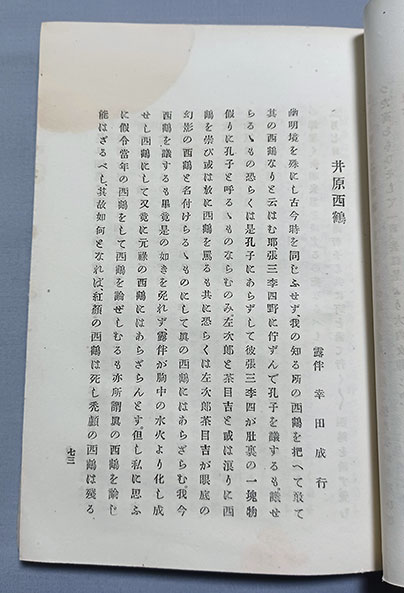 井原西鶴
露伴 幸田成行
幽明境を殊にし古今時を同じふせず我の知る所の西鶴を把へて敢て
其の西鶴なりと云はむ耶張三李四野に佇ずんで孔子を議するも、議せ
らるゝもの恐らくは是孔子にあらずして彼張三李四が肚裏の一塊物
假りに孔子と呼るゝものならむのみ左次郎と茶目吉と或は漫りに西
鶴を崇び或は放に西鶴を罵るも共に恐らくは左次郎茶目吉が眼底の
幻影の西鶴と名付けらるゝものにして眞の西鶴にはあらざらむ、我今
西鶴を議するも畢竟是の如きを免れず露伴が胸中の水火より化し成
せし西鶴にして又竟に元祿の西鶴にはあらざらんとす。但し私に思ふ
に假令當年の西鶴をして西鶴を論ぜしむるも亦所謂眞の西鶴を論じ
能はざるべし、其故如何となれば、紅顔の西鶴は死し禿顱の西鶴は殘る
七三